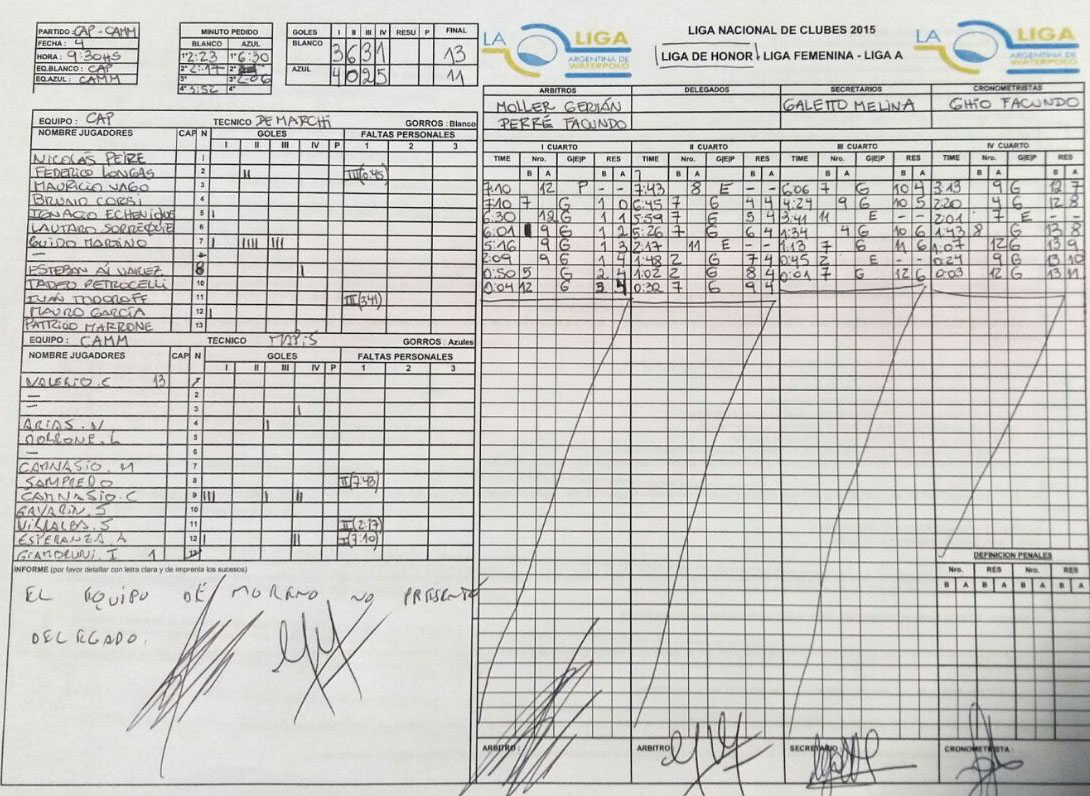 PARTIDO: CAP - CAMM
FECHA: 4
HORA: 9:30HS
EQ.BLANCO: CAP
EQ.AZUL: CAMM
MINUTO PEDIDO
BLANCO AZUL
1° 2:23 1° 6:30
2° 2:17 2°
3° 3° 2:06
4° 3:52 4°
GOLES I II III IV RESU P FINAL
BLANCO 3 6 3 1 13
AZUL 4 0 2 5 11
LA LIGA
ARGENTINA DE
WATERPOLO
LIGA NACIONAL DE CLUBES 2015
LIGA DE HONOR LIGA FEMENINA - LIGA A
LA LIGA
ARGENTINA DE
WATERPOLO
ARBITROS DELEGADOS SECRETARIOS CRONOMETRISTAS
MOLLER GERMÁN GALETTO MELINA GHIO FACUNDO
PERRÉ FACUNDO
EQUIPO: CAP TECNICO DEMARCHI GORROS: Blanco
NOMBRE JUGADORES CAP N GOLES FALTAS PERSONALES
I II III IV P 1 2 3
NICOLÁS PEIRE 1
FEDERICO LONGAS 2 II III(0:45)
MAURICIO VAGO 3
BRUNO CORSI 4
IGNACIO ECHENIQUE 5 I
LAUTARO 6
GUIDO 7 I IIII III
—
ESTEBAN ALVAREZ 8 I
TADEO PETROCELLI 10
IVAN TODOROFF 11 III(3:41)
MAURO GARCÍA 12 I
PATRICIO MARRONE 13
EQUIPO: CAMM TECNICO GORROS: Azules
NOMBRE JUGADORES CAP N GOLES FALTAS PERSONALES
I II III IV P 1 2 3
VALERIO.C 13 1
— 2
— 3 I
ARIAS.N 4 I
5
— 6
CAMNASIO.M 7
SAMPEDRO 8 II(7:43)
CAMNASIO.C 9 III I II
GAVARIN.S 10
VILLALBA.S 11 II(2:17)
ESPERANZA.A 12 I II I(7:10)
1 13
INFORME (por favor detallar con letra clara y de imprenta los sucesos)
EL EQUIPO DE MORENO NO PRESENTÓ
DELEGADO.
I CUARTO II CUARTO III CUARTO IV CUARTO
TIME Nro. G|E|P RES TIME Nro. G|E|P RES TIME Nro. G|E|P RES TIME Nro. G|E|P RES
B A B A B A B A B A B A B A B A
7:10 12 P - - 7:43 8 E - - 6:06 7 G 10 4 3:13 9 G 12 7
7:10 7 G 1 0 6:45 7 G 4 4 4:24 9 G 10 5 2:20 4 G 12 8
6:30 12 G 1 1 5:59 7 G 5 4 3:41 11 E - - 2:01 7 E - -
6:01 9 G 1 2 5:26 7 G 6 4 1:34 4 G 10 6 1:43 8 G 13 8
5:16 9 G 1 3 2:17 11 E - - 1:13 7 G 11 6 1:07 12 G 13 9
2:09 9 G 1 4 1:48 2 G 7 4 0:45 2 E - - 0:24 9 G 13 10
0:50 5 G 2 4 1:02 2 G 8 4 0:01 7 G 12 6 0:03 12 G 13 11
0:04 12 G 3 4 0:32 7 G 9 4
DEFINICION PENALES
Nro. RES Nro. RES
B A B A B A B A
ARBITRO: ARBITRO SECRETARIO CRONOMETRISTA: